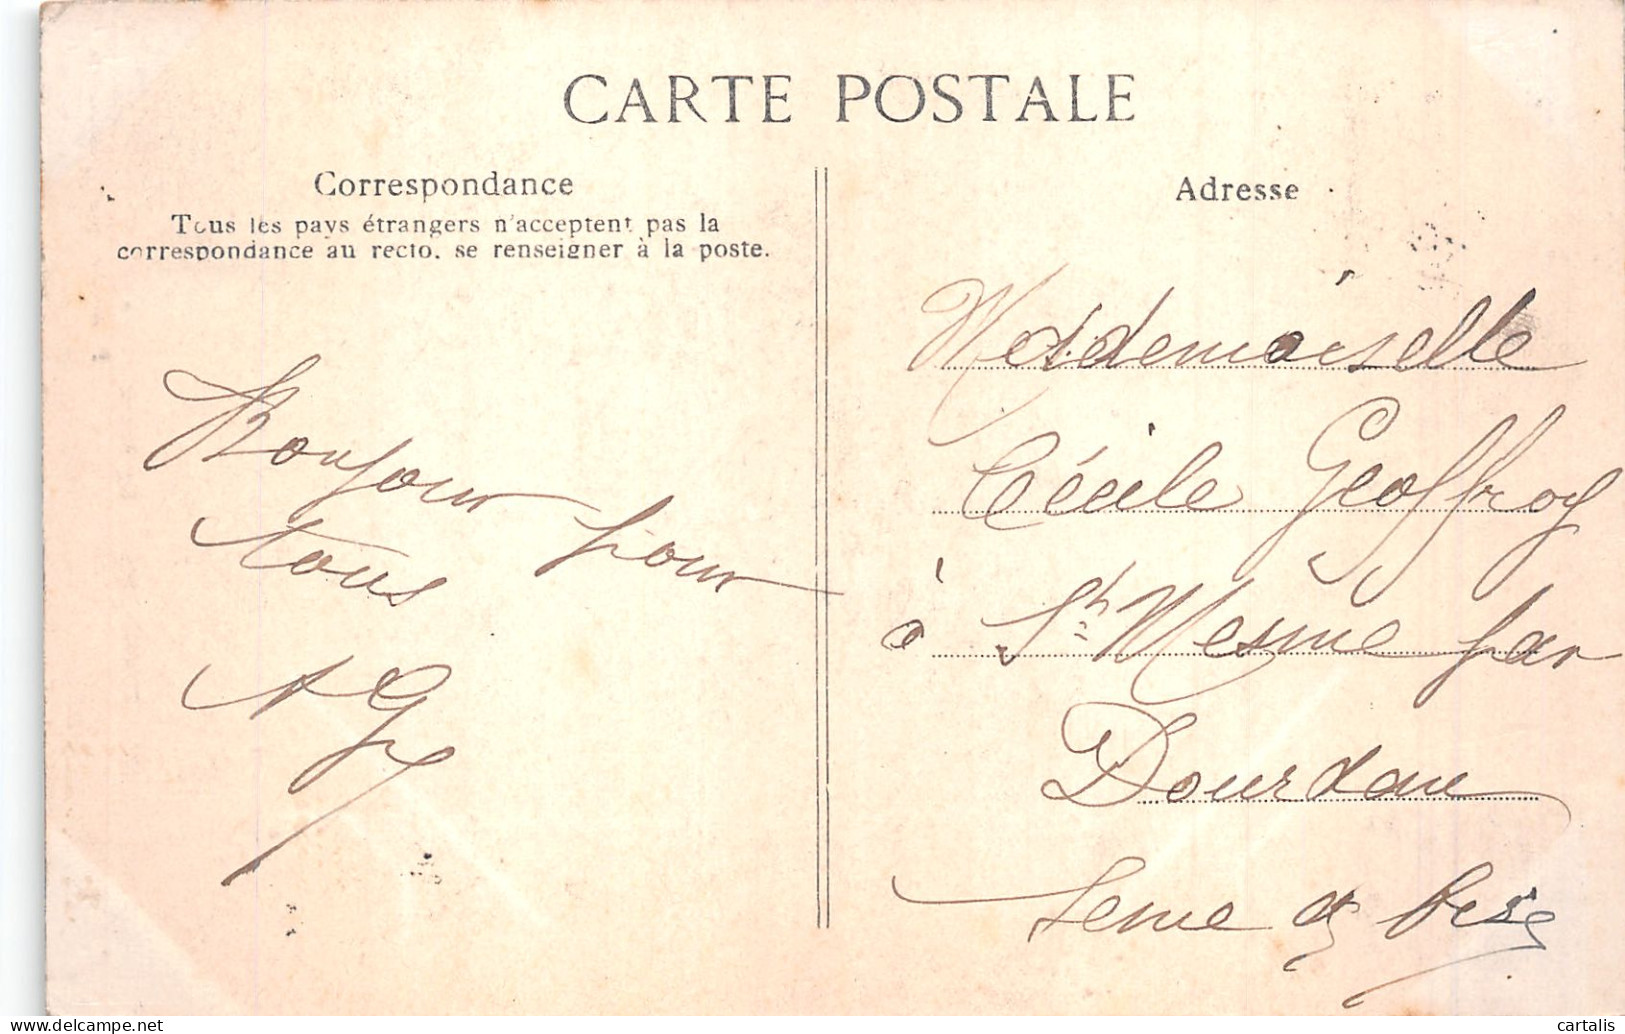 CARTE POSTALE
Correspondance
Tous les pays étrangers n'acceptent pas la
correspondance au recto, se renseigner à la poste.
Bonjour pour
tous
AG
Adresse
Mademoiselle
Cécile Geoffroy
à St Mesme par
Dourdan
Seine et Oise
cartalis